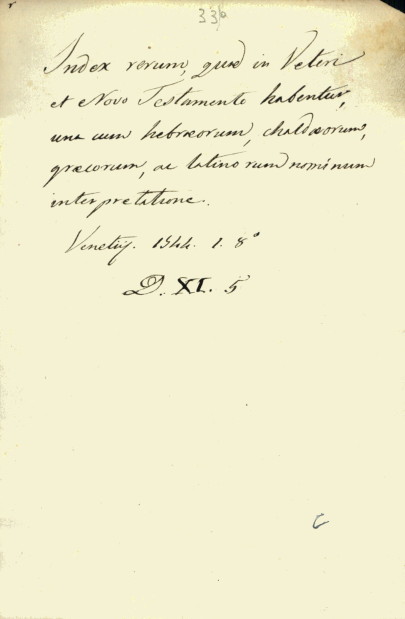 336
Index rerum, quæ in Veteri
et Novo Testamento habentur,
una cum hebræorum, chaldæorum,
græcorum, ac latinorum nominum
interpretatione.
Venetijs. 1544. 1. 8°
D. XI. 5
C